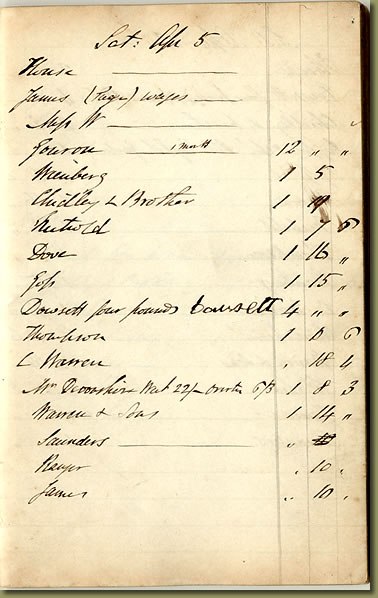 Sat: Apr 5
House
James (Page) wages
Miss W
1 month 12 " "
Wainberg 1 5
Chidley & Brother 1
1 7 6
Dove 1 16 "
1 15 "
Dowsett four pounds Dowsett 4 " "
Thompson 1 8 6
L Warren . 18 4
Mrs Devonshire Week 22/- 6/3 1 8 3
Warren & Sons 1 14 "
Saunders "
" 10 "
James " 10 "